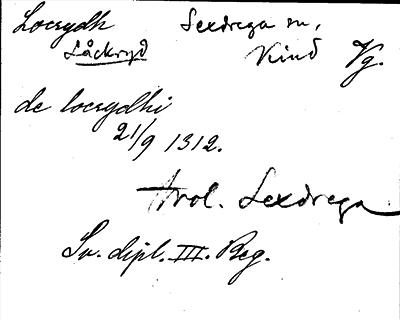 Locrydh Sexdrega sn,
Låckryd Kind Vg.
de locrydhi
21/9 1312.
trol. Sexdrega
Sv. dipl. III. Reg.